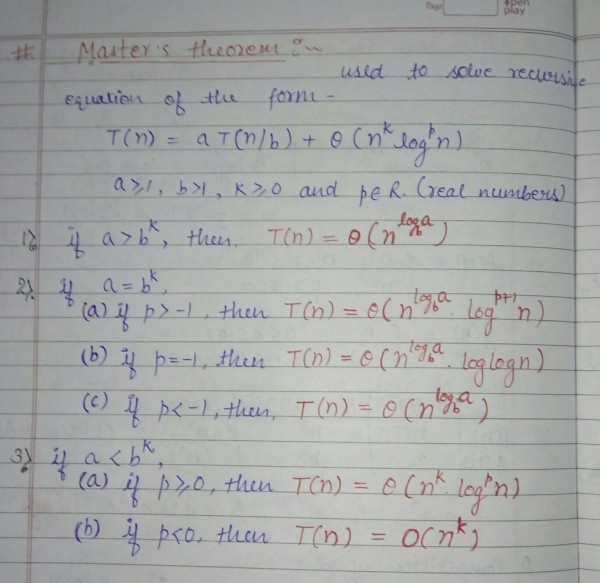 Page
open play
# Master's theorem :~
used to solve recursive
equation of the form -
T(n) = a T(n/b) + θ (n^k log^p n)
a≥1, b>1, k≥0 and p∈R. (real numbers)
1) if a>b^k, then T(n) = θ (n^{log_b a})
2) if a = b^k,
(a) if p>-1, then T(n) = θ(n^{log_b a} . log^{p+1} n)
(b) if p=-1, then T(n) = θ (n^{log_b a} . loglogn)
(c) if p<-1, then, T(n) = θ (n^{log_b a})
3) if a < b^k,
(a) if p≥0, then T(n) = θ (n^k . log^p n)
(b) if p<0, then T(n) = O(n^k)